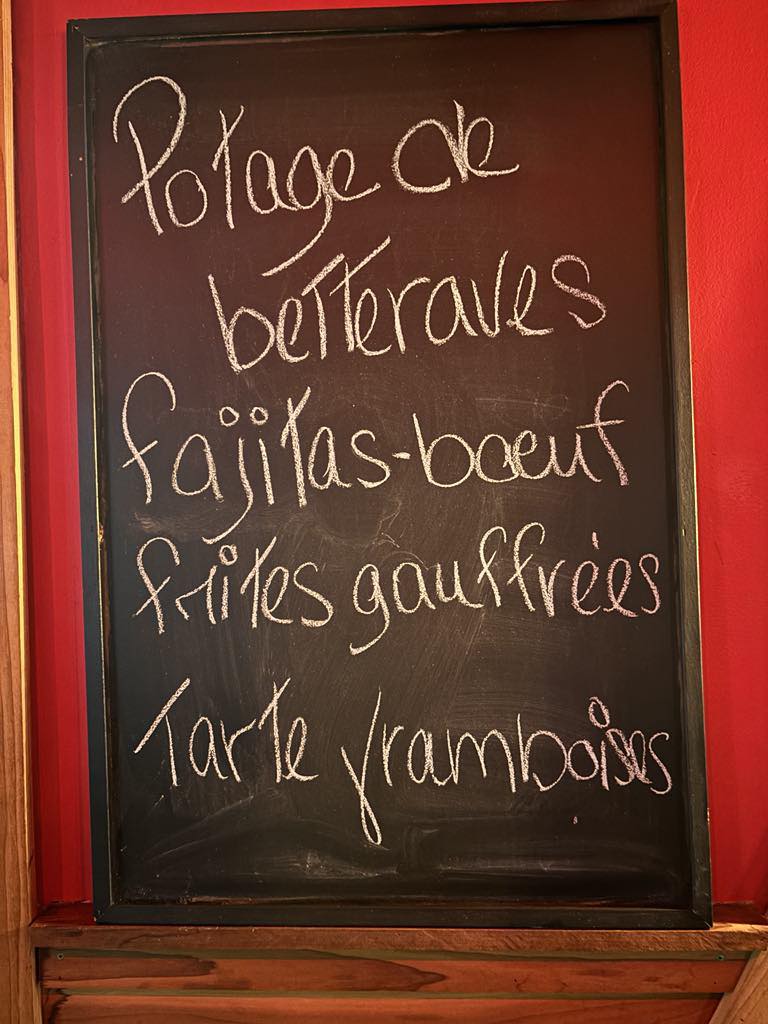 Potage de
betteraves
fajitas-boeuf
frites gauffrées
Tarte framboises